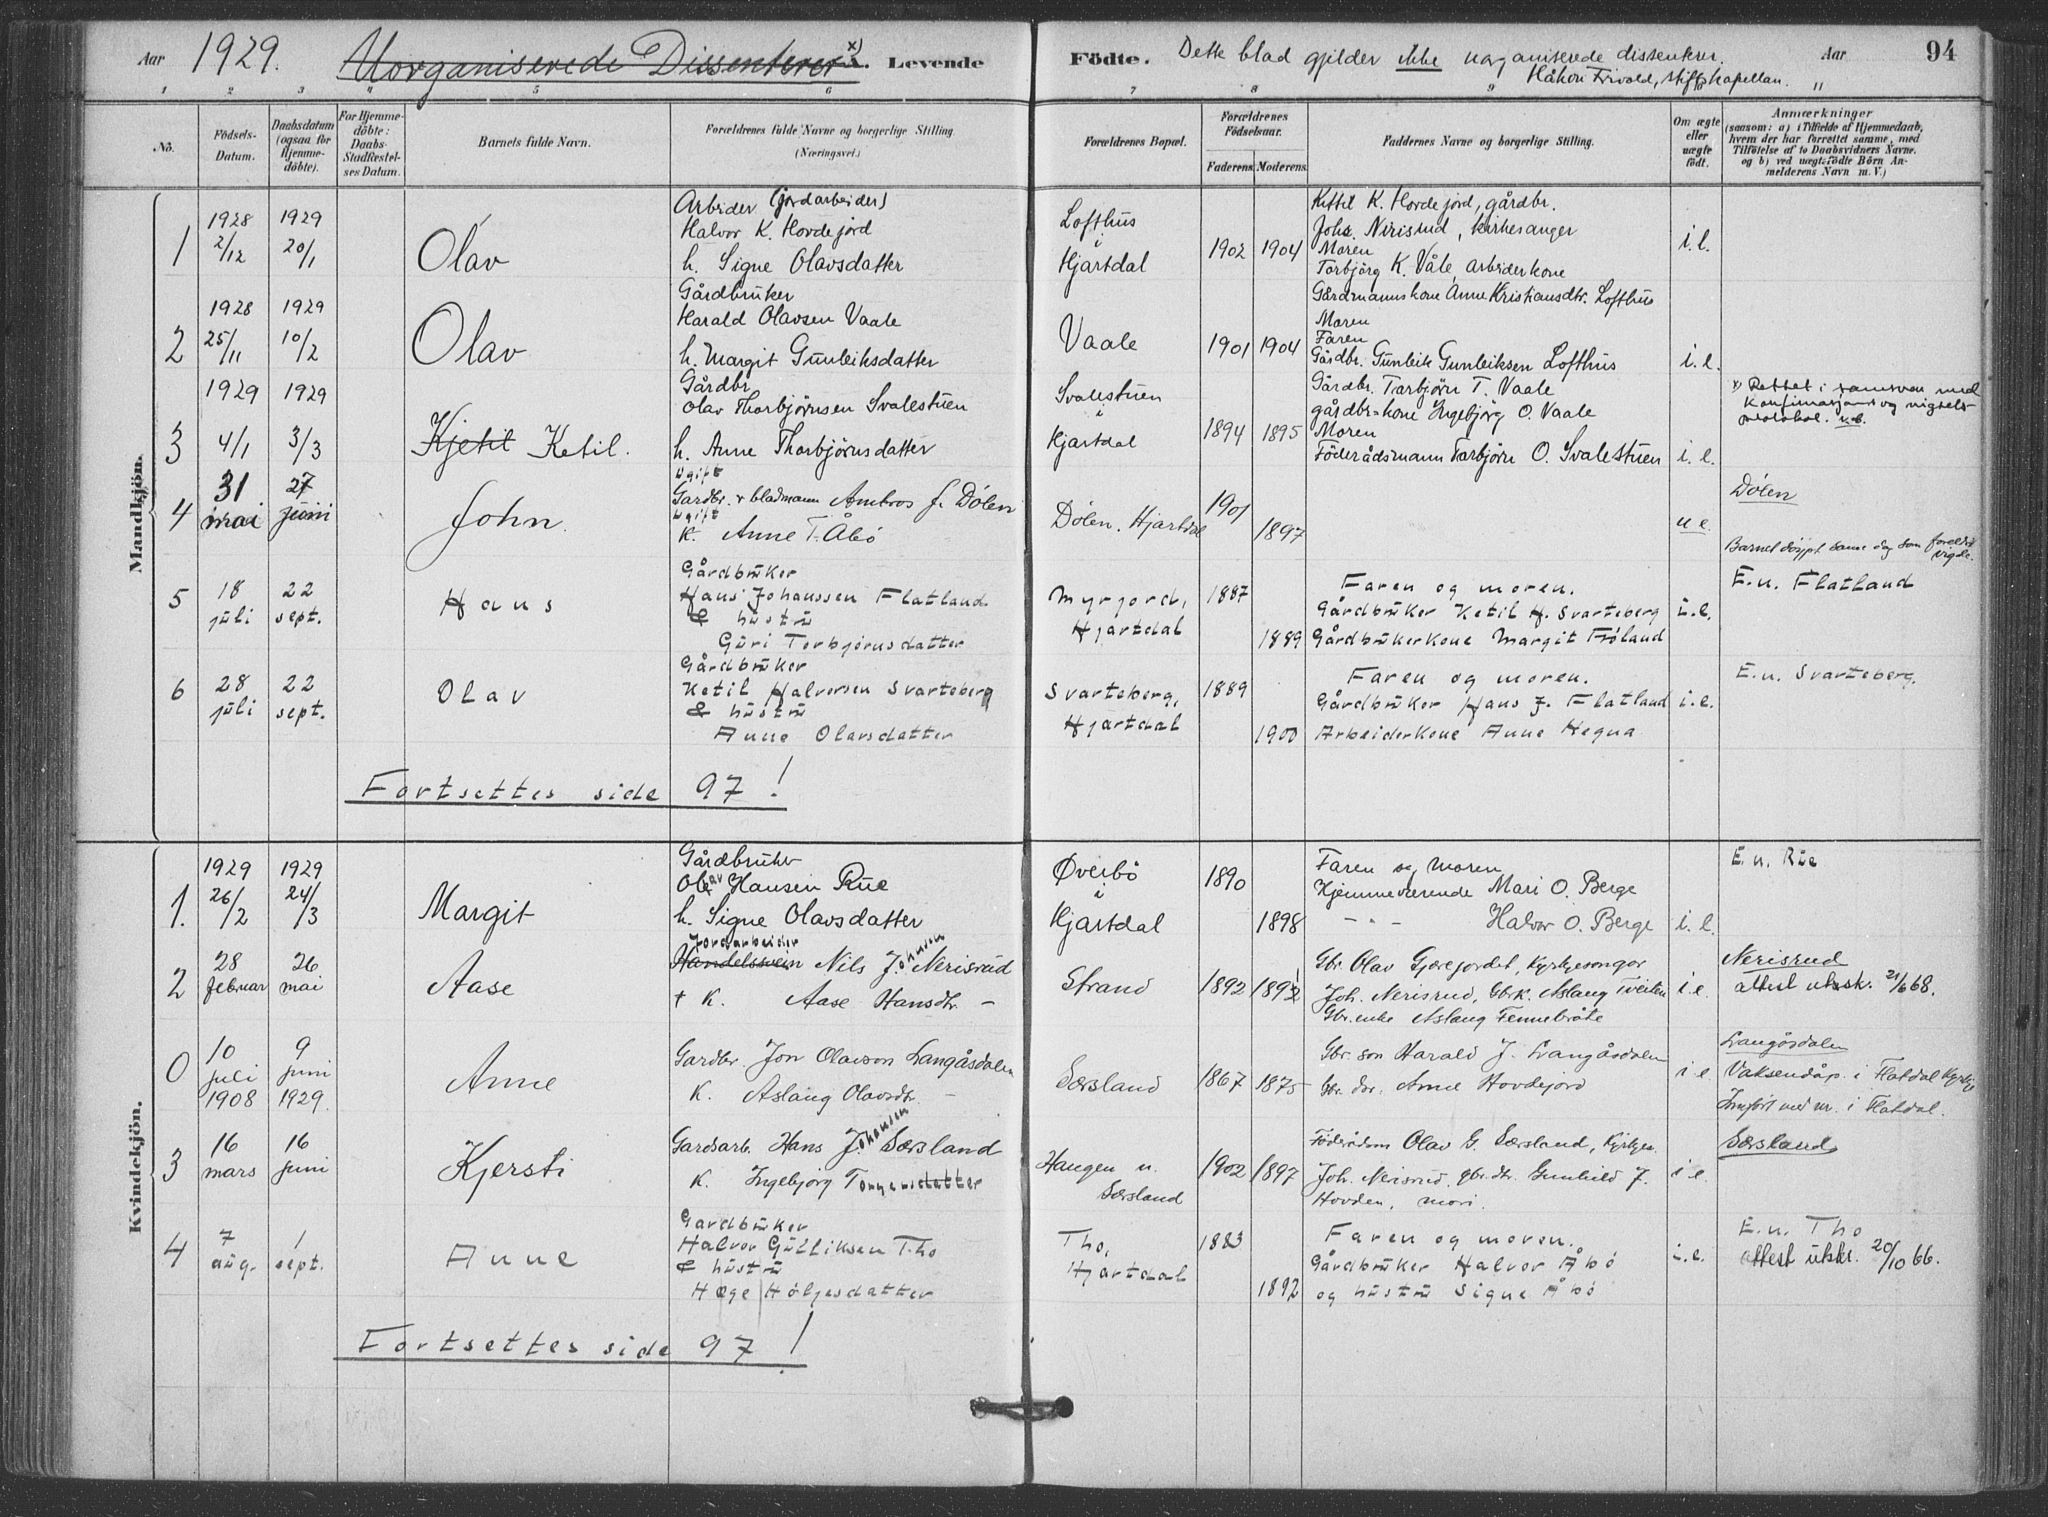 Aar 1929. Uorganiserede Dissenterer x) A. Levende Födte. Dette blad gjelder ikke uorganiserede dissentere. Aar 94
Håkon Trivold, stiftskapellan.
1 2 3 4 5 6 7 8 9 10 11
No. Födsels-Datum. Daabsdatum (ogsaa for Hjemmedöbte). For Hjemmedöbte: Daabs-Stadfestelses Datum. Barnets fulde Navn. Forældrenes fulde Navne og borgerlige Stilling (Næringsvei.) Forældrenes Bopæl. Forældrenes Födselsaar. Faderens. Moderens. Faddernes Navne og borgerlige Stilling. Om ægte eller uægte födt. Anmærkninger (saasom: a) i Tilfælde af Hjemmedaab, hvem der har forrettet samme, med Tilföielse af to Daabsvidners Navne. og b) ved uægtefödte Börn Anmelderens Navn m. V.)
Mandkjön.
1 1928 2/12 1929 20/1 Olav
Arbeider (jordarbeider)
Halvor K. Hovdejord
h. Signe Olavsdatter
Lofthus
i
Hjartdal
1902 1904
Kittil K. Hovdejord, gårdbr.
Johs. Nerisrud, kirkesanger
Moren
Torbjörg K. Våle, arbeiderkone
Gårdmannskone Anne Kristiansdtr. Lofthus
i. e.
2 1928 25/11 1929 10/2 Olav
Gårdbruker
Harald Olavsen Vaale
h. Margit Gunleiksdatter
Vaale
1901 1904
Moren
Faren
Gårdbr. Gunleik Gunleiksen Lofthus
i. e.
3 1929 4/1 1929 3/3 Kjetil Ketil.
Gårdbr.
Olav Thorbjörnsen Svalestuen
h. Anne Thorbjörnsdatter
Svalestuen
i
Hjartdal
1894 1895
Gårdbr. Tarbjörn T. Vaale
gårdbr-kone Ingebjörg O. Vaale
Moren
Föderådsmann Tarbjörn O. Svalestuen
i. e.
x) Rettet i samsvar med
konfirmasjons og vigsels-
protokol.
4 31 mai 27 juni John.
Ugift
Gardbr. + bladmann Ambros J. Dölen
Ugift
K. Anne T. Åbö
Dölen. Hjartdal
1901 1897
u e.
Dölen
Barnet döypt same dag som foreldr.
vigde.
5 18 juli 22 sept. Hans
Gårdbruker
Hans Johanssen Flatland
& hustru
Guri Torbjörnsdatter
Myrjord,
Hjartdal
1887 1889
Faren og moren.
Gårdbruker Ketil H. Svarteberg
Gårdbrukerkone Margit Fröland
i. e.
E. n. Flatland
6 28 juli 22 sept. Olav
Gårdbruker
Ketil Halvorsen Svarteberg
& hustru
Anne Olavsdatter
Svarteberg,
Hjartdal
1889 1900
Faren og moren.
Gårdbruker Hans J. Flatland
Arbeiderkone Anne Hegna
i. e.
E. n. Svarteberg.
Fortsettes side 97!
Kvindekjön.
1. 1929 26/2 1929 24/3 Margit
Gårdbruker
Olav Hansen Rue
h. Signe Olavsdatter
Øverbö
i
Hjartdal
1890 1898
Faren og moren
Hjemmeværende Mari O. Berge
- „ - Halvor O. Berge
i. e.
E. n. Rue
2 28 februar 26 mai Aase
Jordarbeider
Handelssvein Nils Johansen Nerisrud
+ K. Aase Hansdtr. –
Strand
1892 1892
Gbr. Olav Gjærejordet, kyrkjesongar
Joh. Nerisrud, Gbrk. Aslaug Tveiten
Gbr.enke Aslaug Tennebröte
i e.
Nerisrud
attest utsk. 21/6 68.
0 10 juli 1908 9 juni 1929. Anne
Gardbr. Jon Olavson Langåsdalen
K. Aslaug Olavsdtr. –
Særsland
1867 1875
Gbr son Harald J. Langåsdalen
Gbr. dtr. Anne Hovdejord
i e
Langåsdalen
Vaksendåp. i Flatdal kyrkje
Innfört med nr. i Flatdal.
3 16 mars 16 juni Kjersti
Gardsarb. Hans Johansen Særsland
K. Ingebjörg Torgersdatter
Haugen u.
Særsland
1902 1897
Föderådsm Olav G. Særsland, Kyrkjes.
Joh. Nerisrud, gbr.dtr. Gunhild J.
Hovden, mori
i e.
Særsland
4 7 aug. 1 sept. Anne
Gardbruker
Halvor Gulliksen Tho
& hustru
Hæge Höljesdatter
Tho,
Hjartdal
1883 1892
Faren og moren.
Gårdbruker Halvor Åbö
og hustru Signe Åbö
i. e.
E. n. Tho
attest utskr. 20/10 66.
Fortsettes side 97!